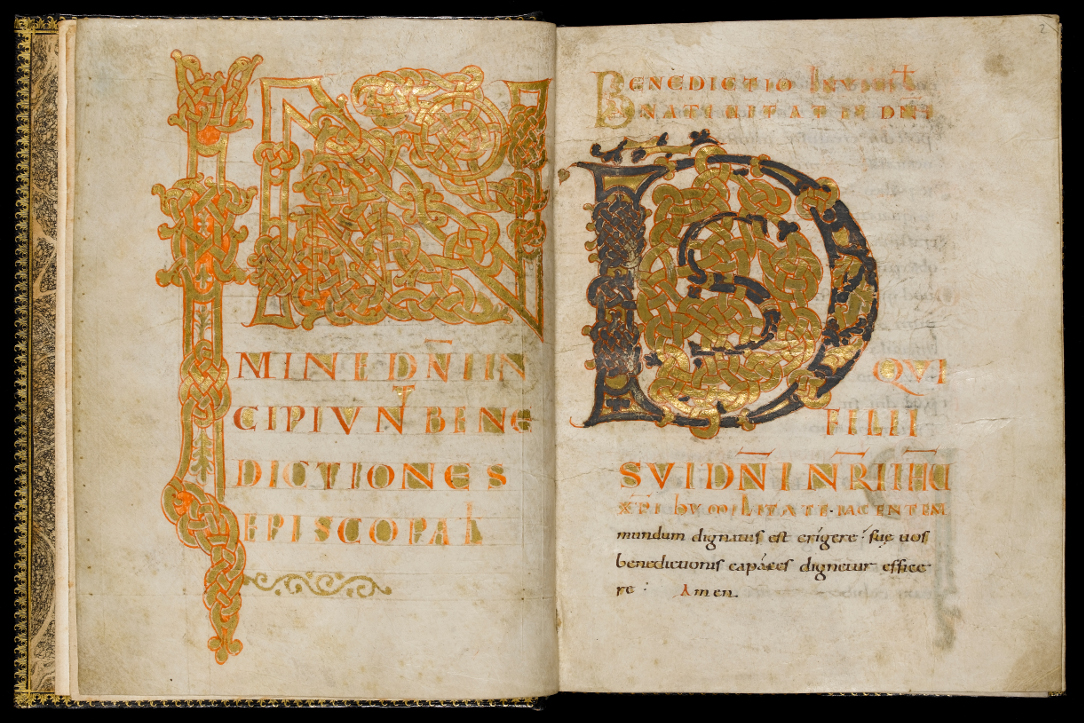 IN NO
MINE DN̄I IN
CIPIVN̄T BENE
DICTIONES
EPISCOPAL
2
BENEDICTIO IN VIGIL
NATIVITATIS DN̄I
DS
QVI
FILII
SVI DN̄I NR̄I IHV
XP̄I hVMILITATE IACENTEM
mundum dignatus est erigere. sue uos
benedictionis capáces dignetur effice
re. Amen.